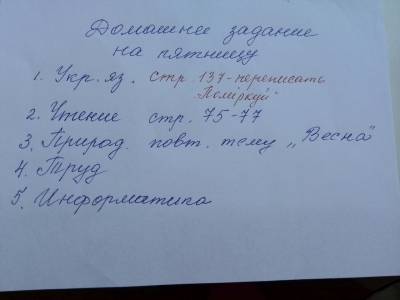 Домашнее задание
на пятницу
1. Укр. яз. стр. 137-переписать
"Поміркуй"
2. Чтение стр. 75-77
3. Природ. повт. тему „Весна"
4. Труд
5. Информатика